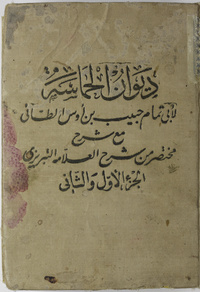 ديوان الحماسة
لأبى تمام حبيب بن أوس الطائى
مع شرح
مختصر من شرح العلامة التبريزى
الجزء الأول والثانى